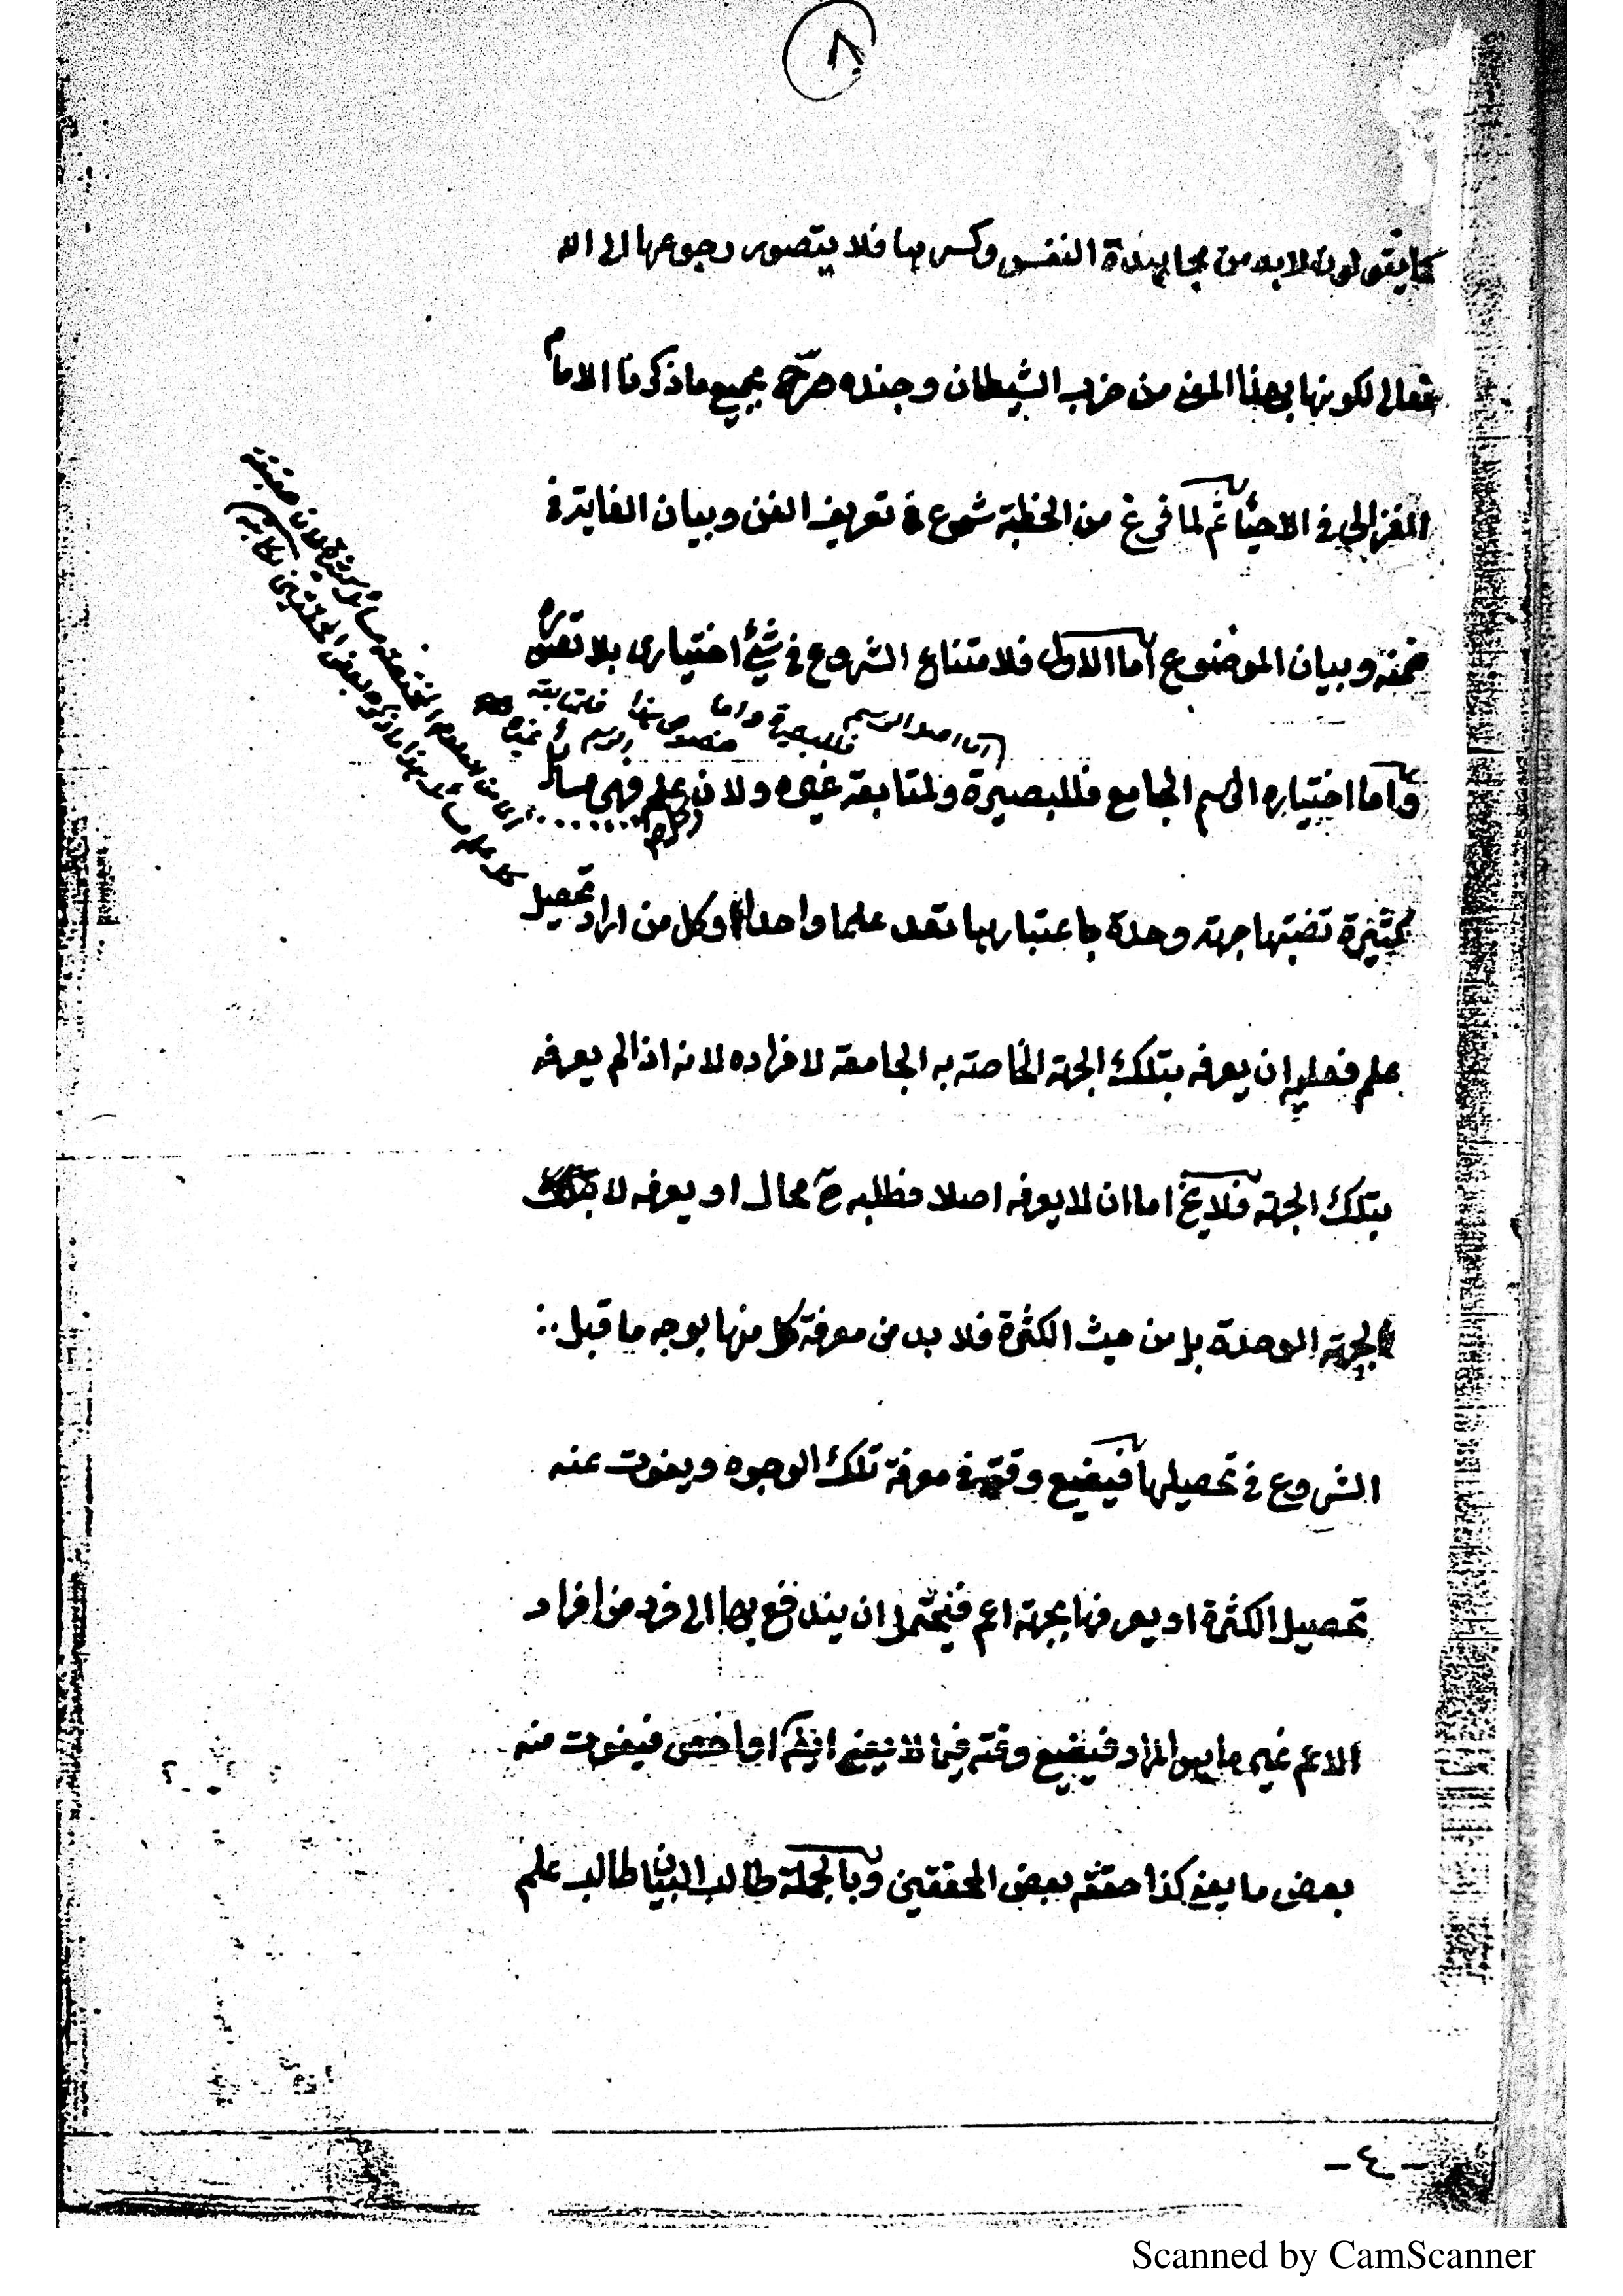 ٨
كما يقولون لابد من مجاهدة النفس وكسرها فلا يتصور رجوعها الى الله
تعالى لكونها بهذا المعنى من حزب الشيطان وجنده صرّح بجميع ما ذكرنا الامام
الغزالي في الاحياء ثم لما فرغ من الخطبة شرع في تعريف الفن وبيان الفايدة في
ضمنه وبيان الموضوع اما الاول فلامتناع الشروع في شئ اختيارى بلا تصوره
واما اختياره الرسم الجامع فللبصيرة ولمتابعة غيره ولان علم فهى مسائل
كثيرة تضبتها جهة وحدة باعتبارها تعد علما واحدا وكل من اراد تحصيل
علم فعليه ان يعرفه بتلك الجهة الخاصة به الجامعة لافراده لانه اذا لم يعرفه
بتلك الجهة فلا يخ اما ان لا يعرفه اصلا فطلبه ح محال او يعرفه لا بتلك
الجهة الوحدة بل من حيث الكثرة فلا بد من معرفة كل منها بوجه ما قبل
الشروع في تحصيلها فيضيع وقته في معرفة تلك الوجوه ويفوت عنه
تحصيل الكثرة او يعرفها بجهة اعم فيحتمل ان يندفع بها الى فرد من افراد
الاعم غير ما هو المراد فيضيع وقته فيما لا يعنيه او اخص فيفوت منه
بعض ما يعنى كذا حققه بعض المحققين وبالجملة طالب البيان طالب علم
اما اصل الرسم فللبصيرة واما خصوص هذا فلمتابعة
الرسم غيره
كل علم
-٤-
Scanned by CamScanner